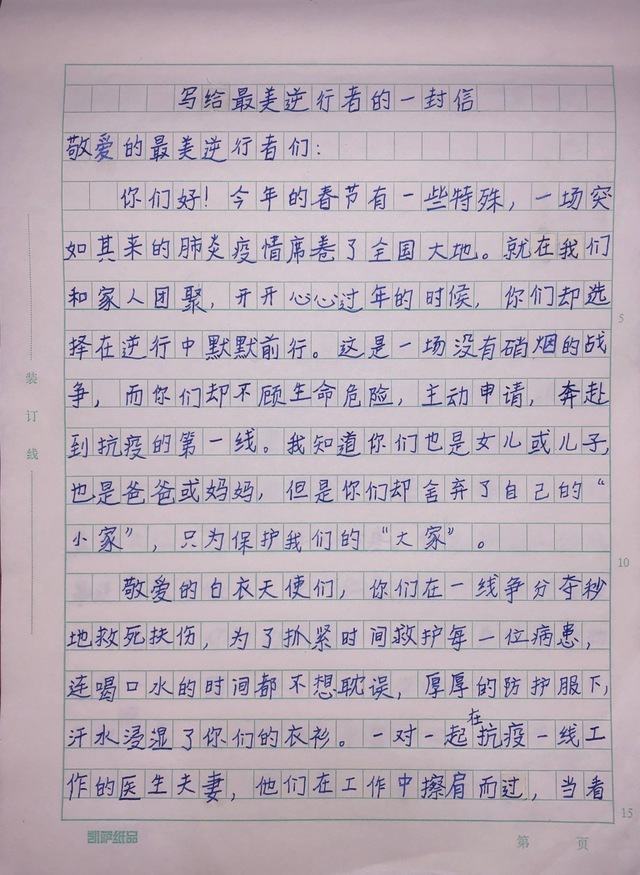 写给最美逆行者的一封信
敬爱的最美逆行者们：
你们好！今年的春节有一些特殊，一场突
如其来的肺炎疫情席卷了全国大地。就在我们
和家人团聚，开开心心过年的时候，你们却选
择在逆行中默默前行。这是一场没有硝烟的战
争，而你们却不顾生命危险，主动申请，奔赴
到抗疫的第一线。我知道你们也是女儿或儿子，
也是爸爸或妈妈，但是你们却舍弃了自己的“
小家”，只为保护我们的“大家”。
敬爱的白衣天使们，你们在一线争分夺秒
地救死扶伤，为了扒紧时间救护每一位病患，
连喝口水的时间都不想耽误，厚厚的防护服下，
汗水浸湿了你们的衣衫。一对一起在抗疫一线工
作的医生夫妻，他们在工作中擦肩而过，当看
装订线
5
10
15
凯萨纸品
第 页